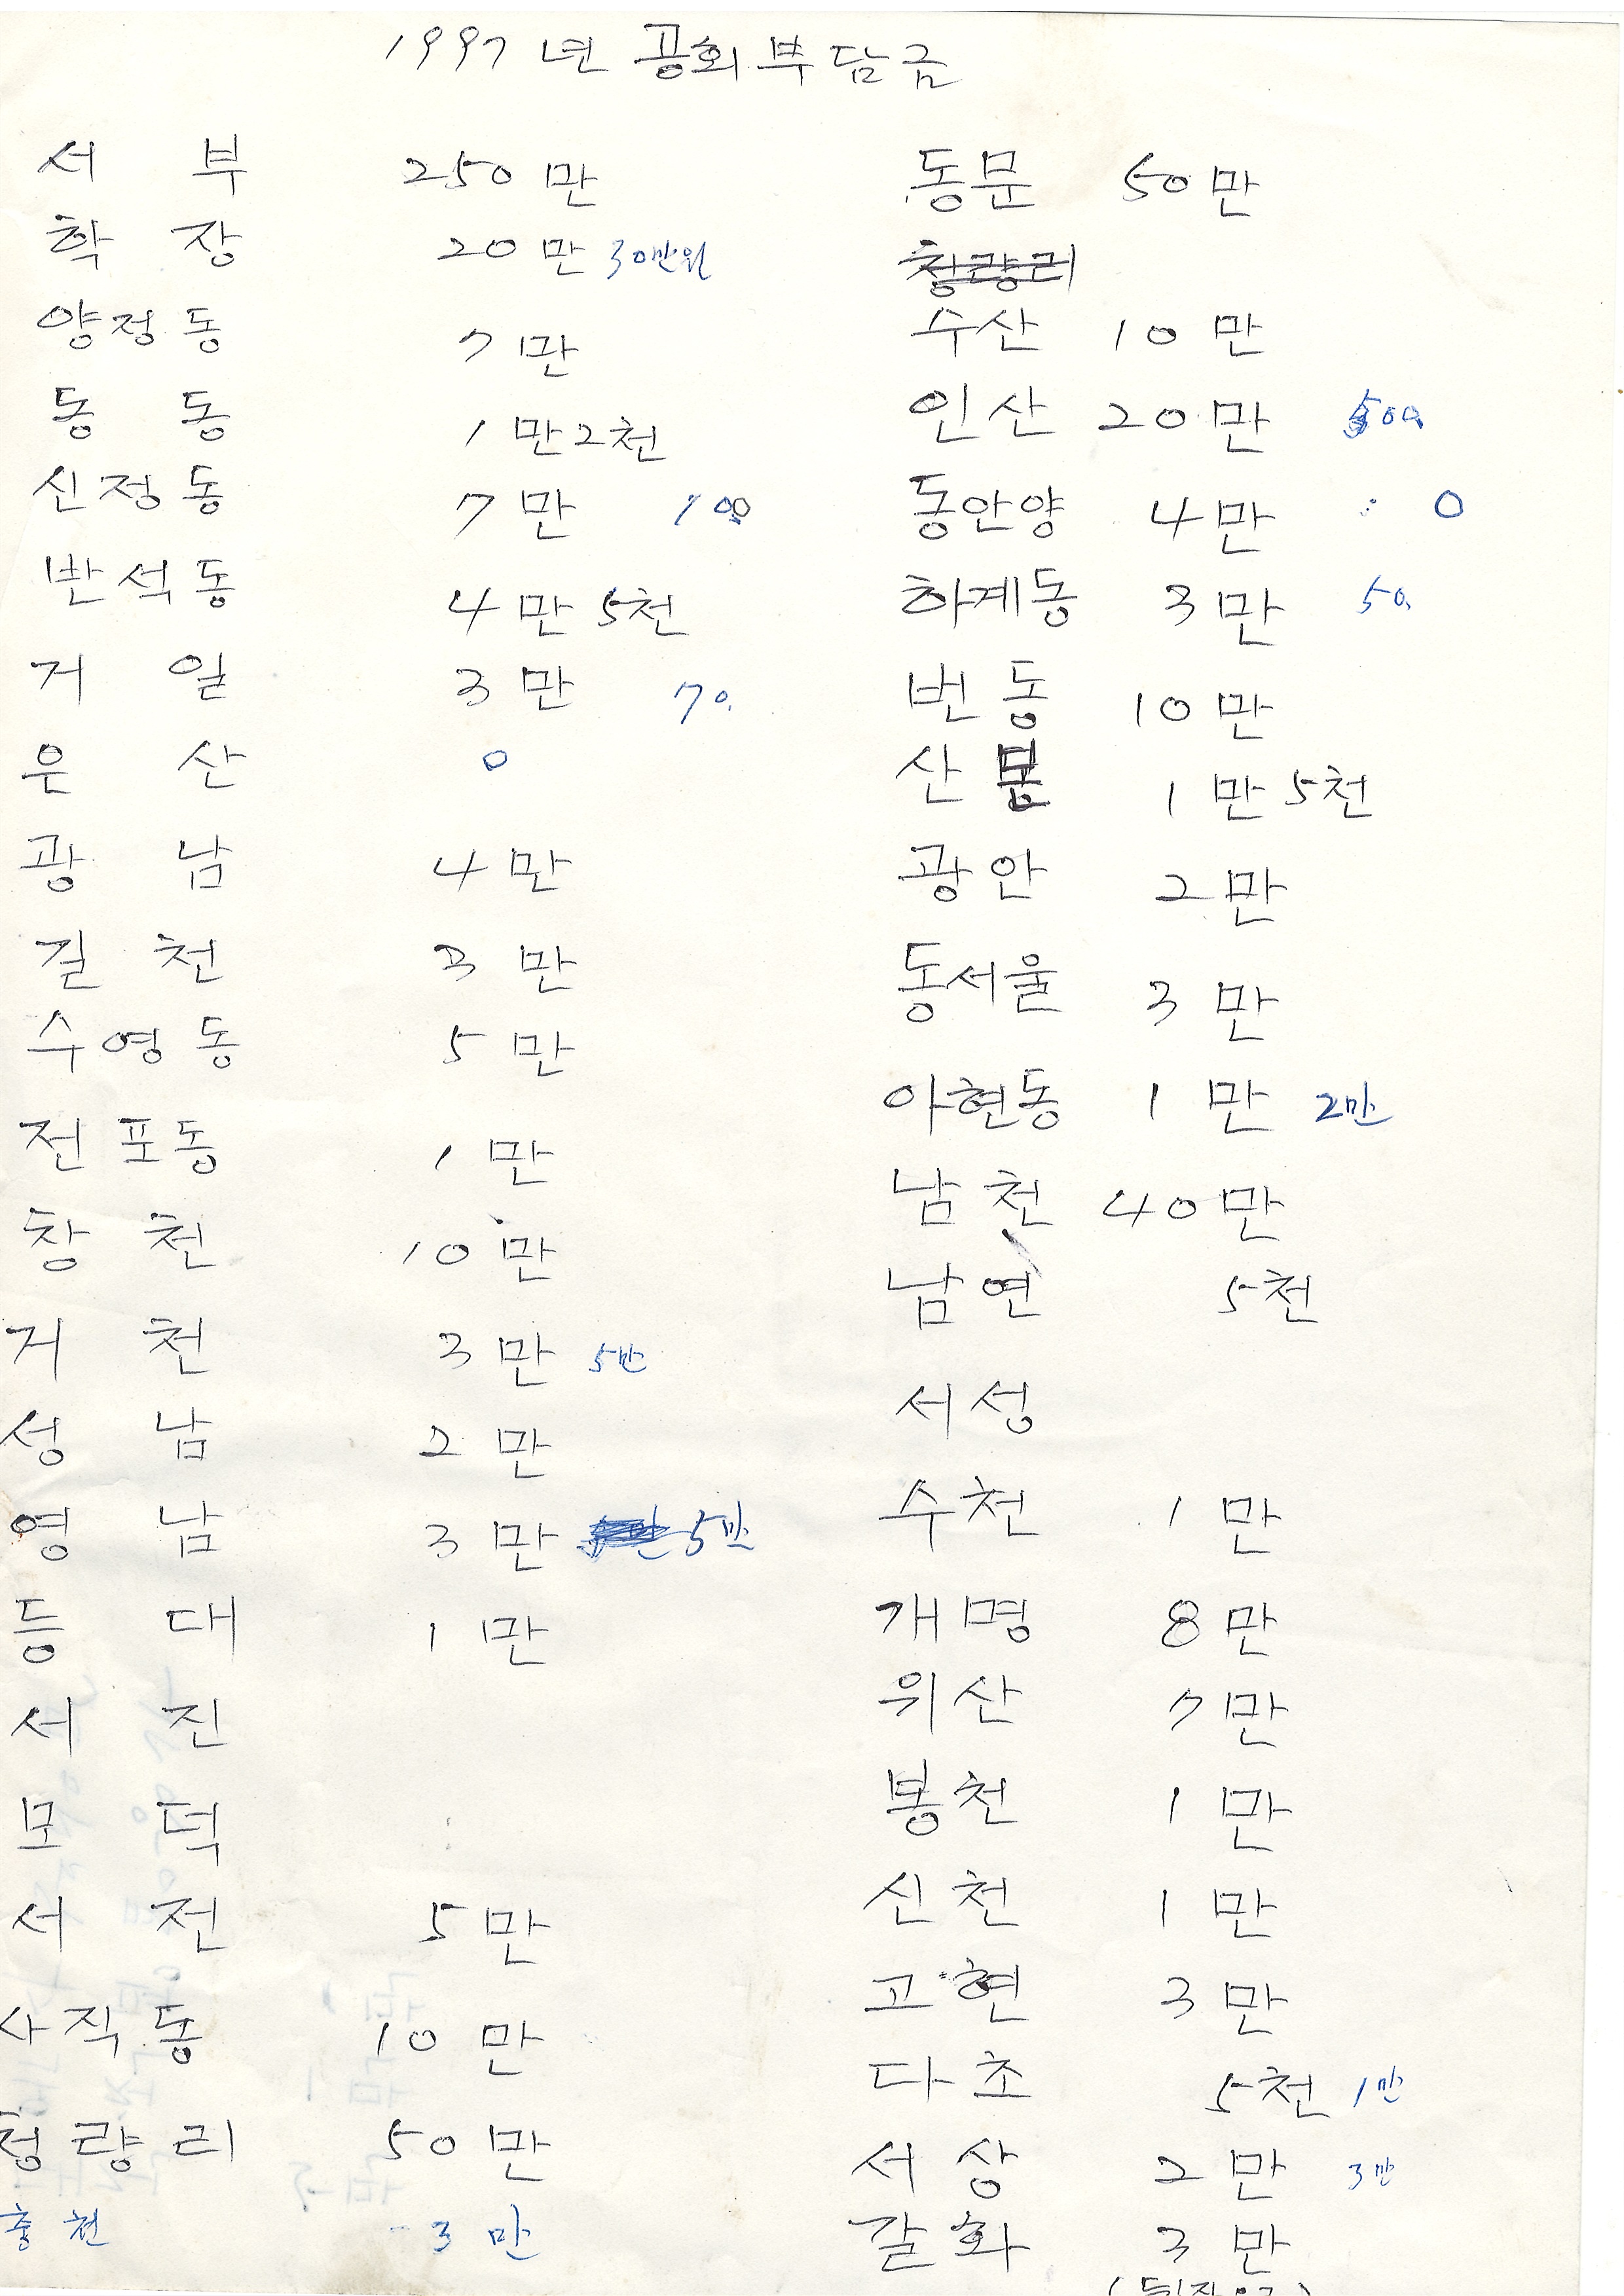 1997년 공회부담금
서 부 250만
학 장 20만 30만원
양정동 7만
동 동 1만2천
신정동 7만 100
반석동 4만5천
거 일 3만 70.
은 산 0
광 남 4만
길 천 3만
수영동 5만
전포동 1만
창 천 10만
거 천 3만 5만
성 남 2만
영 남 3만 5만
등 대 1만
서 진
모 덕
서 전 5만
사직동 10만
청량리 50만
충 천 3만
동문 50만
청량리
수산 10만
인산 20만
동안양 4만 0
하계동 3만 50.
번동 10만
산 1만5천
광안 2만
동서울 3만
아현동 1만 2만
남천 40만
남연 5천
서성
수천 1만
개명 8만
위산 7만
봉천 1만
신천 1만
고현 3만
다초 5천 1만
서상 2만 3만
갈화 3만